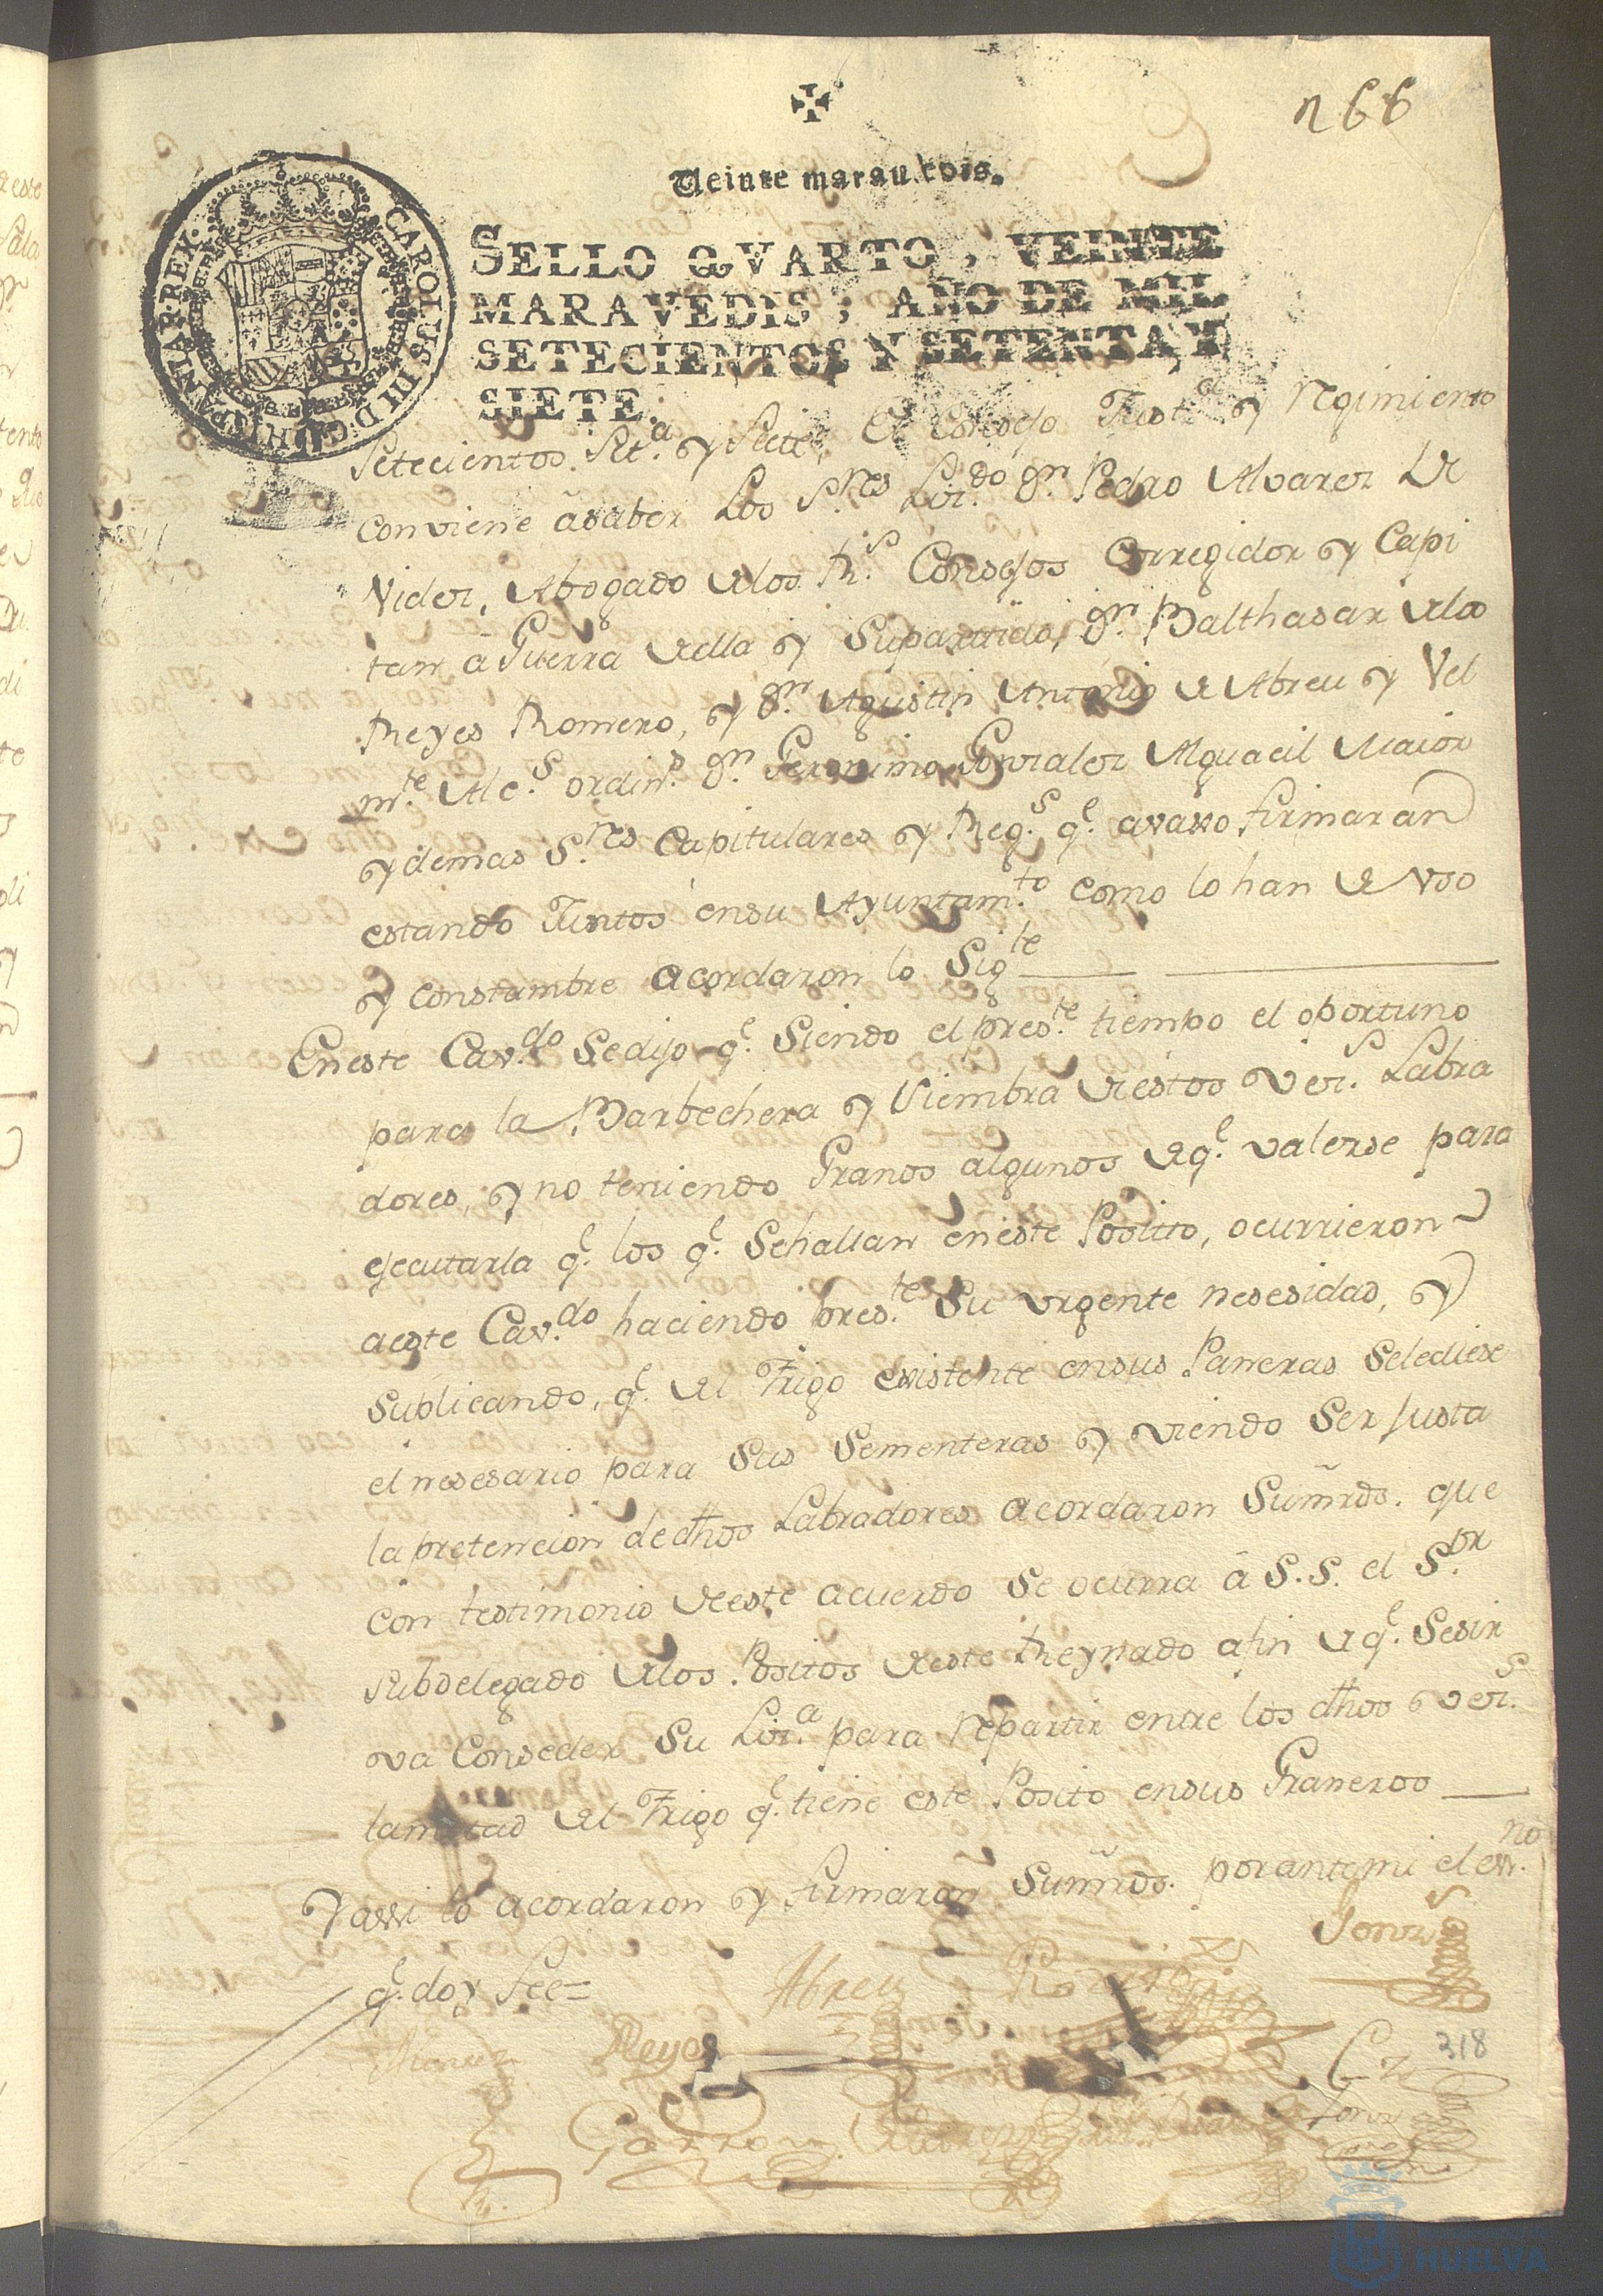 266
Veinte marauedis.
SELLO QVARTO, VEINTE
MARAVEDIS, AÑO DE MIL
SETECIENTOS Y SETENTA Y
SIETE.
CAROLUS III D. G. HISPANIAR. REX.
Setecientos Set.ª y Siete, El Consejo Just.ª y Regimiento
conviene ā saber Los S.res Liz.do Dn. Pedro Alvarez de
Videz, Abogado de los R.s Consejos Corregidor y Capi
tan a Guerra de ella y Supartido, Dn. Balthasar de los
Reyes Romero, y Dn. Agustin Antonio de Abreu y Vel
m.te Alc.s ordin.s Dn. Geronimo Gonzalez Alguacil Maior
y demas S.res Capitulares y Reg.s q.e avaxo firmaran
estando Juntos ensu Ayuntam.to como lo han de Uso
y Constumbre acordaron lo Sig.te
Eneste Cav.do Sedijo q.e Siendo el pres.te tiempo el oportuno
para la Barbechera y Siembra de estos Vez.s Labra
dores, y no teniendo Granos algunos de q.e valerse para
ejecutarla q.e los q.e Sehallan eneste Posito, ocurrieron
aeste Cav.do haciendo pres.te Su urgente nesesidad, y
Suplicando, q.e del Trigo existente ensus Paneras Selediese
el nesesario para Sus Sementeras y viendo Ser Justa
la pretencion de dhos Labradores acordaron Sumrds. que
con testimonio de este acuerdo Se ocurra â S.S. el S.or
Subdelegado de los Positos de este Reynado afin de q.e Sesir
va Conseder Su Liz.ª para Repartir entre los dhos Vez.s
lamitad del Trigo q.e tiene este Posito ensus Graneros
Y assi lo acordaron y firmaron Sumrds. por antemi el ess.no
q.e doy fee=
Abreu
Gonz.s
Reyes
318
Garzon
HUELVA